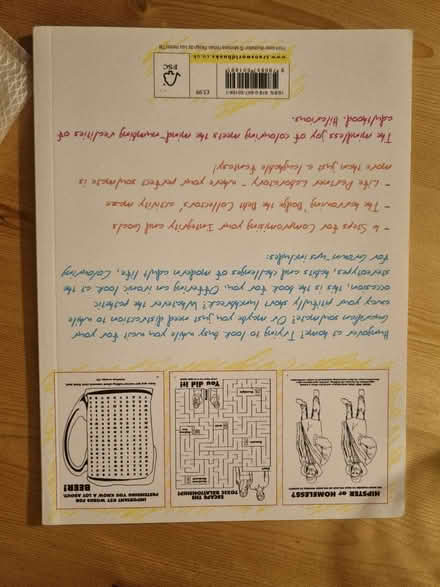 HIPSTER or HOMELESS?
ESCAPE THE
TOXIC RELATIONSHIP!
You did it!
IMPORTANT KEY WORDS FOR
PRETENDING YOU KNOW A LOT ABOUT:
BEER!
Hungover at home? Trying to look busy while you wait for your
soulmate? Or maybe you just need distraction to while
away your pitifully short lunchtime? Whatever the pathetic
occasion, this is the book for you. Offering an ironic look at the
stereotypes, habits and challenges of modern adult life, Colouring
for Grown-ups includes:
- 6 Steps for Compromising Your Integrity and Goals
- The harrowing 'Dodge the Debt Collectors' activity maze
- Life Partner Laboratory - where your perfect soulmate is
more than a laughable fantasy!
The mindless joy of colouring meets the mind-numbing realities of
adulthood. Hilarious.
£5.99
FSC
www.transworldbooks.co.uk